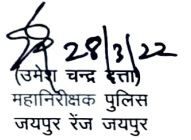 28/3/22
(उमेश चन्द्र दत्ता)
महानिरीक्षक पुलिस
जयपुर रेंज जयपुर